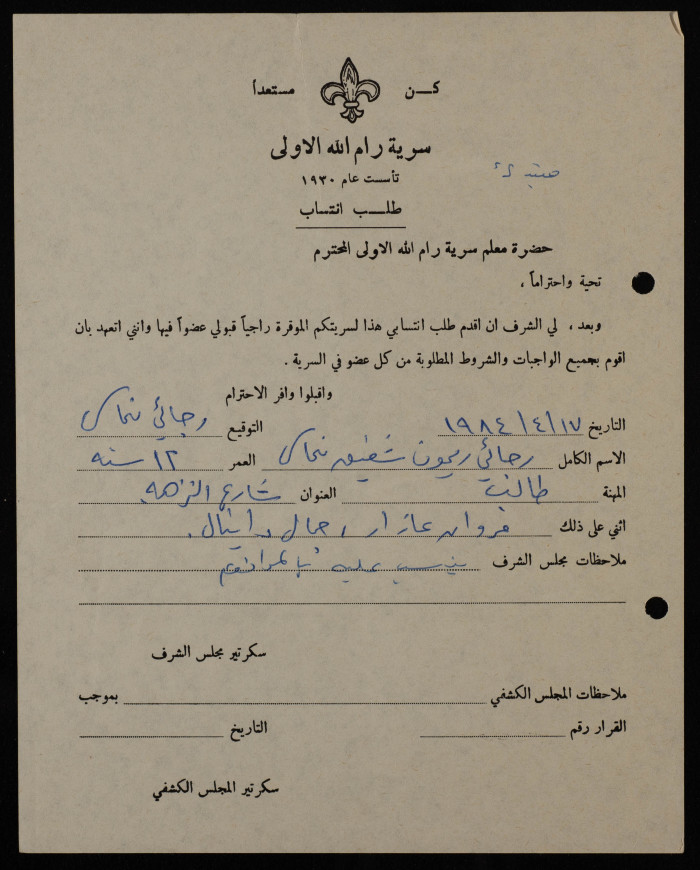 كـــن مستعداً
سرية رام الله الاولى
تأسست عام ١٩٣٠
طلـــب انتساب
حضرة معلم سرية رام الله الاولى المحترم
تحية واحتراماً ،
وبعد ، لي الشرف ان اقدم طلب انتسابي هذا لسريتكم الموقرة راجياً قبولي عضواً فيها وانني اتعهد بان
اقوم بجميع الواجبات والشروط المطلوبة من كل عضو في السرية .
واقبلوا وافر الاحترام
التاريخ ١٧/٤/١٩٨٤ التوقيع رجائي نحاس
الاسم الكامل رجائي ريمون شفيق نحاس العمر ١٢ سنه
المهنة طالب العنوان شارع النزهه
اثني على ذلك مروان عازار ، جمال
ملاحظات مجلس الشرف ينسب عليه بالموافقه
سكرتير مجلس الشرف
ملاحظات المجلس الكشفي بموجب
القرار رقم التاريخ
سكرتير المجلس الكشفي